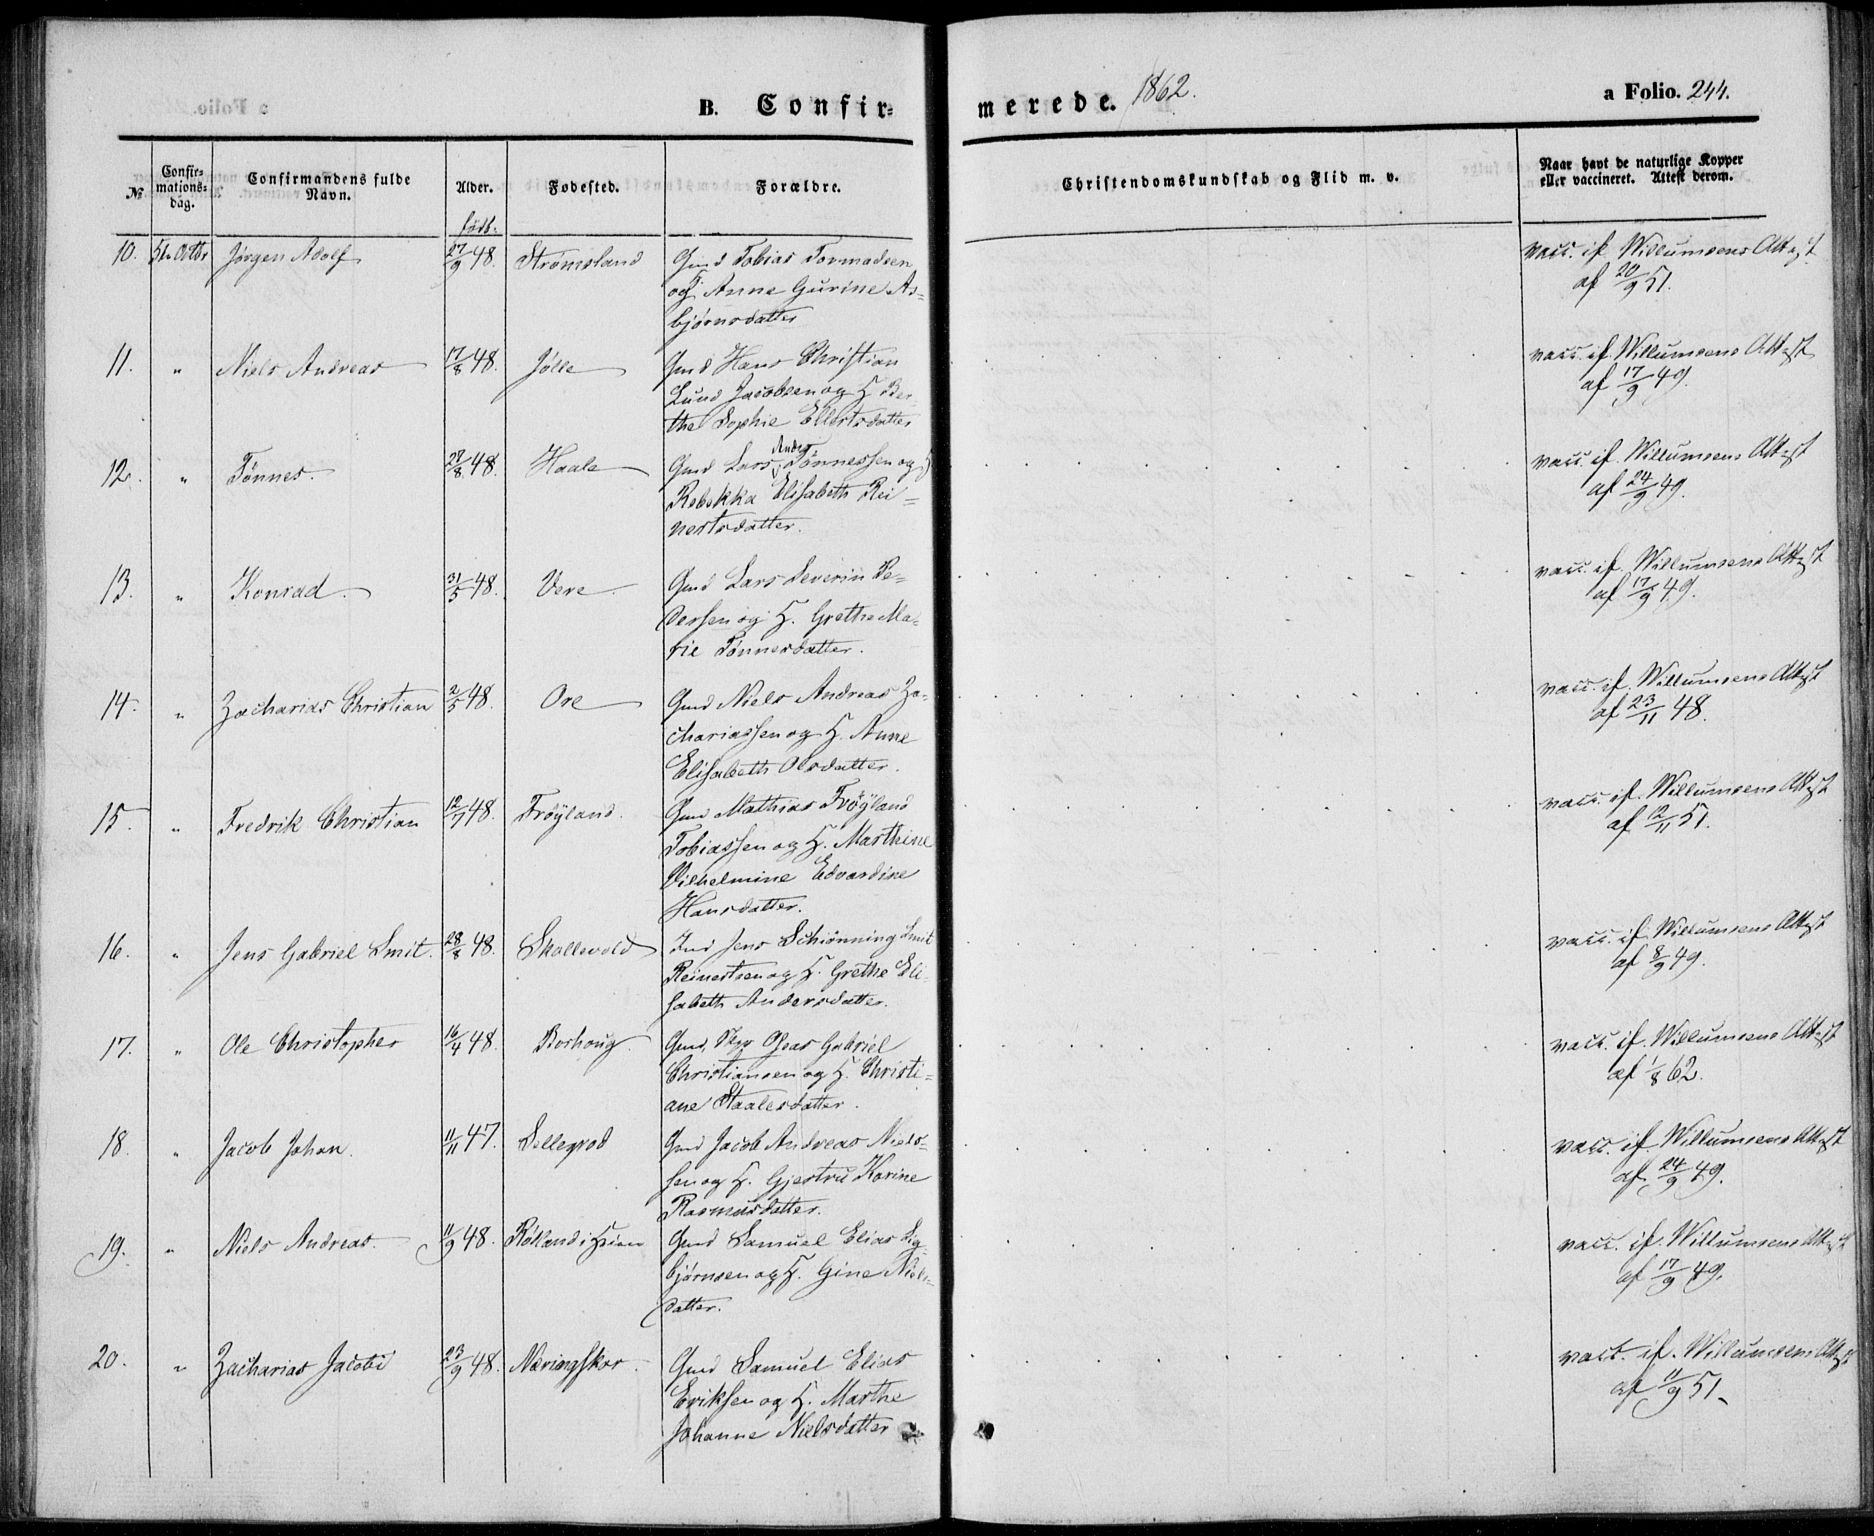 B. Confir=
merede. 1862.
a Folio. 244.
№
Confir-
mations-
dag.
Confirmandens fulde
Navn.
Alder.
Fødested.
Forældre.
Christendomskundskab og Flid m. v.
Naar havt de naturlige Kopper
eller vaccineret. Attest derom.
født.
10. 5te Octbr Jørgen Adolf 27/9 48. Strømsland Gmd Tobias Tormodsen
og Anne Gurine As-
bjørnsdatter
vacc. if. Willumsens Attest
af 20/9 51.
11. " Niels Andreas 17/8 48. Jølle Gmd Hans Christian
Lund Jacobsen og H. Ber-
the Sophie Ellertsdatter
vacc. if. Willumsens Attest
af 17/9 49.
12. " Tønnes. 28/8 48. Haale Gmd Lars Andr. Tønnessen og H
Rebekka Elisabeth Rei-
nertsdatter.
vacc. if. Willumsens Attest
af 24/9 49.
13. " Konrad. 31/5 48. Vere Gmd Lars Severin Pe-
dersen og H. Grethe Ma-
rie Tønnesdatter.
vacc. if. Willumsens Attest
af 17/9 49.
14. " Zacharias Christian 2/5 48. Ore Gmd Niels Andreas Za-
chariassen og H. Anne
Elisabeth Olsdatter.
vacc. if. Willumsens Attest
af 23/11 48.
15. " Fredrik Christian 12/7 48. Frøyland. Gmd Mathias Frøyland
Tobiassen og H. Marthine
Vilhelmine Edvardine
Hansdatter.
vacc. if. Willumsens Attest
af 12/11 51.
16. " Jens Gabriel Smit. 28/8 48. Skollevold Ind Jens Schiønning Smit
Reinertsen og H. Grethe Eli-
sabeth Andersdatter.
vacc. if. Willumsens Attest
af 8/9 49.
17. " Ole Christopher 16/4 48. Borhoug. Gmd, Oseas Gabriel
Christiansen og H. Christi-
ane Staalesdatter.
vacc. if. Willumsens Attest
af 1/8 62.
18. " Jacob Johan. 11/11 47. Sellegrod Gmd Jacob Andreas Niels-
sen og H. Gjertru Karine
Rasmusdatter.
vacc. if. Willumsens Attest
af 24/9 49.
19. " Niels Andreas. 11/9 48. Røiland i Gmd Samuel Elias Sig-
bjørnsen og H. Gine Niels-
datter.
vacc. if. Willumsens Attest
af 17/9 49.
20. " Zacharias Jacobi 23/9 48. Næringskor. Gmd Samuel Elias
Eriksen og H. Marthe
Johanne Nielsdatter
vacc. if. Willumsens Attest
af 11/9 51.